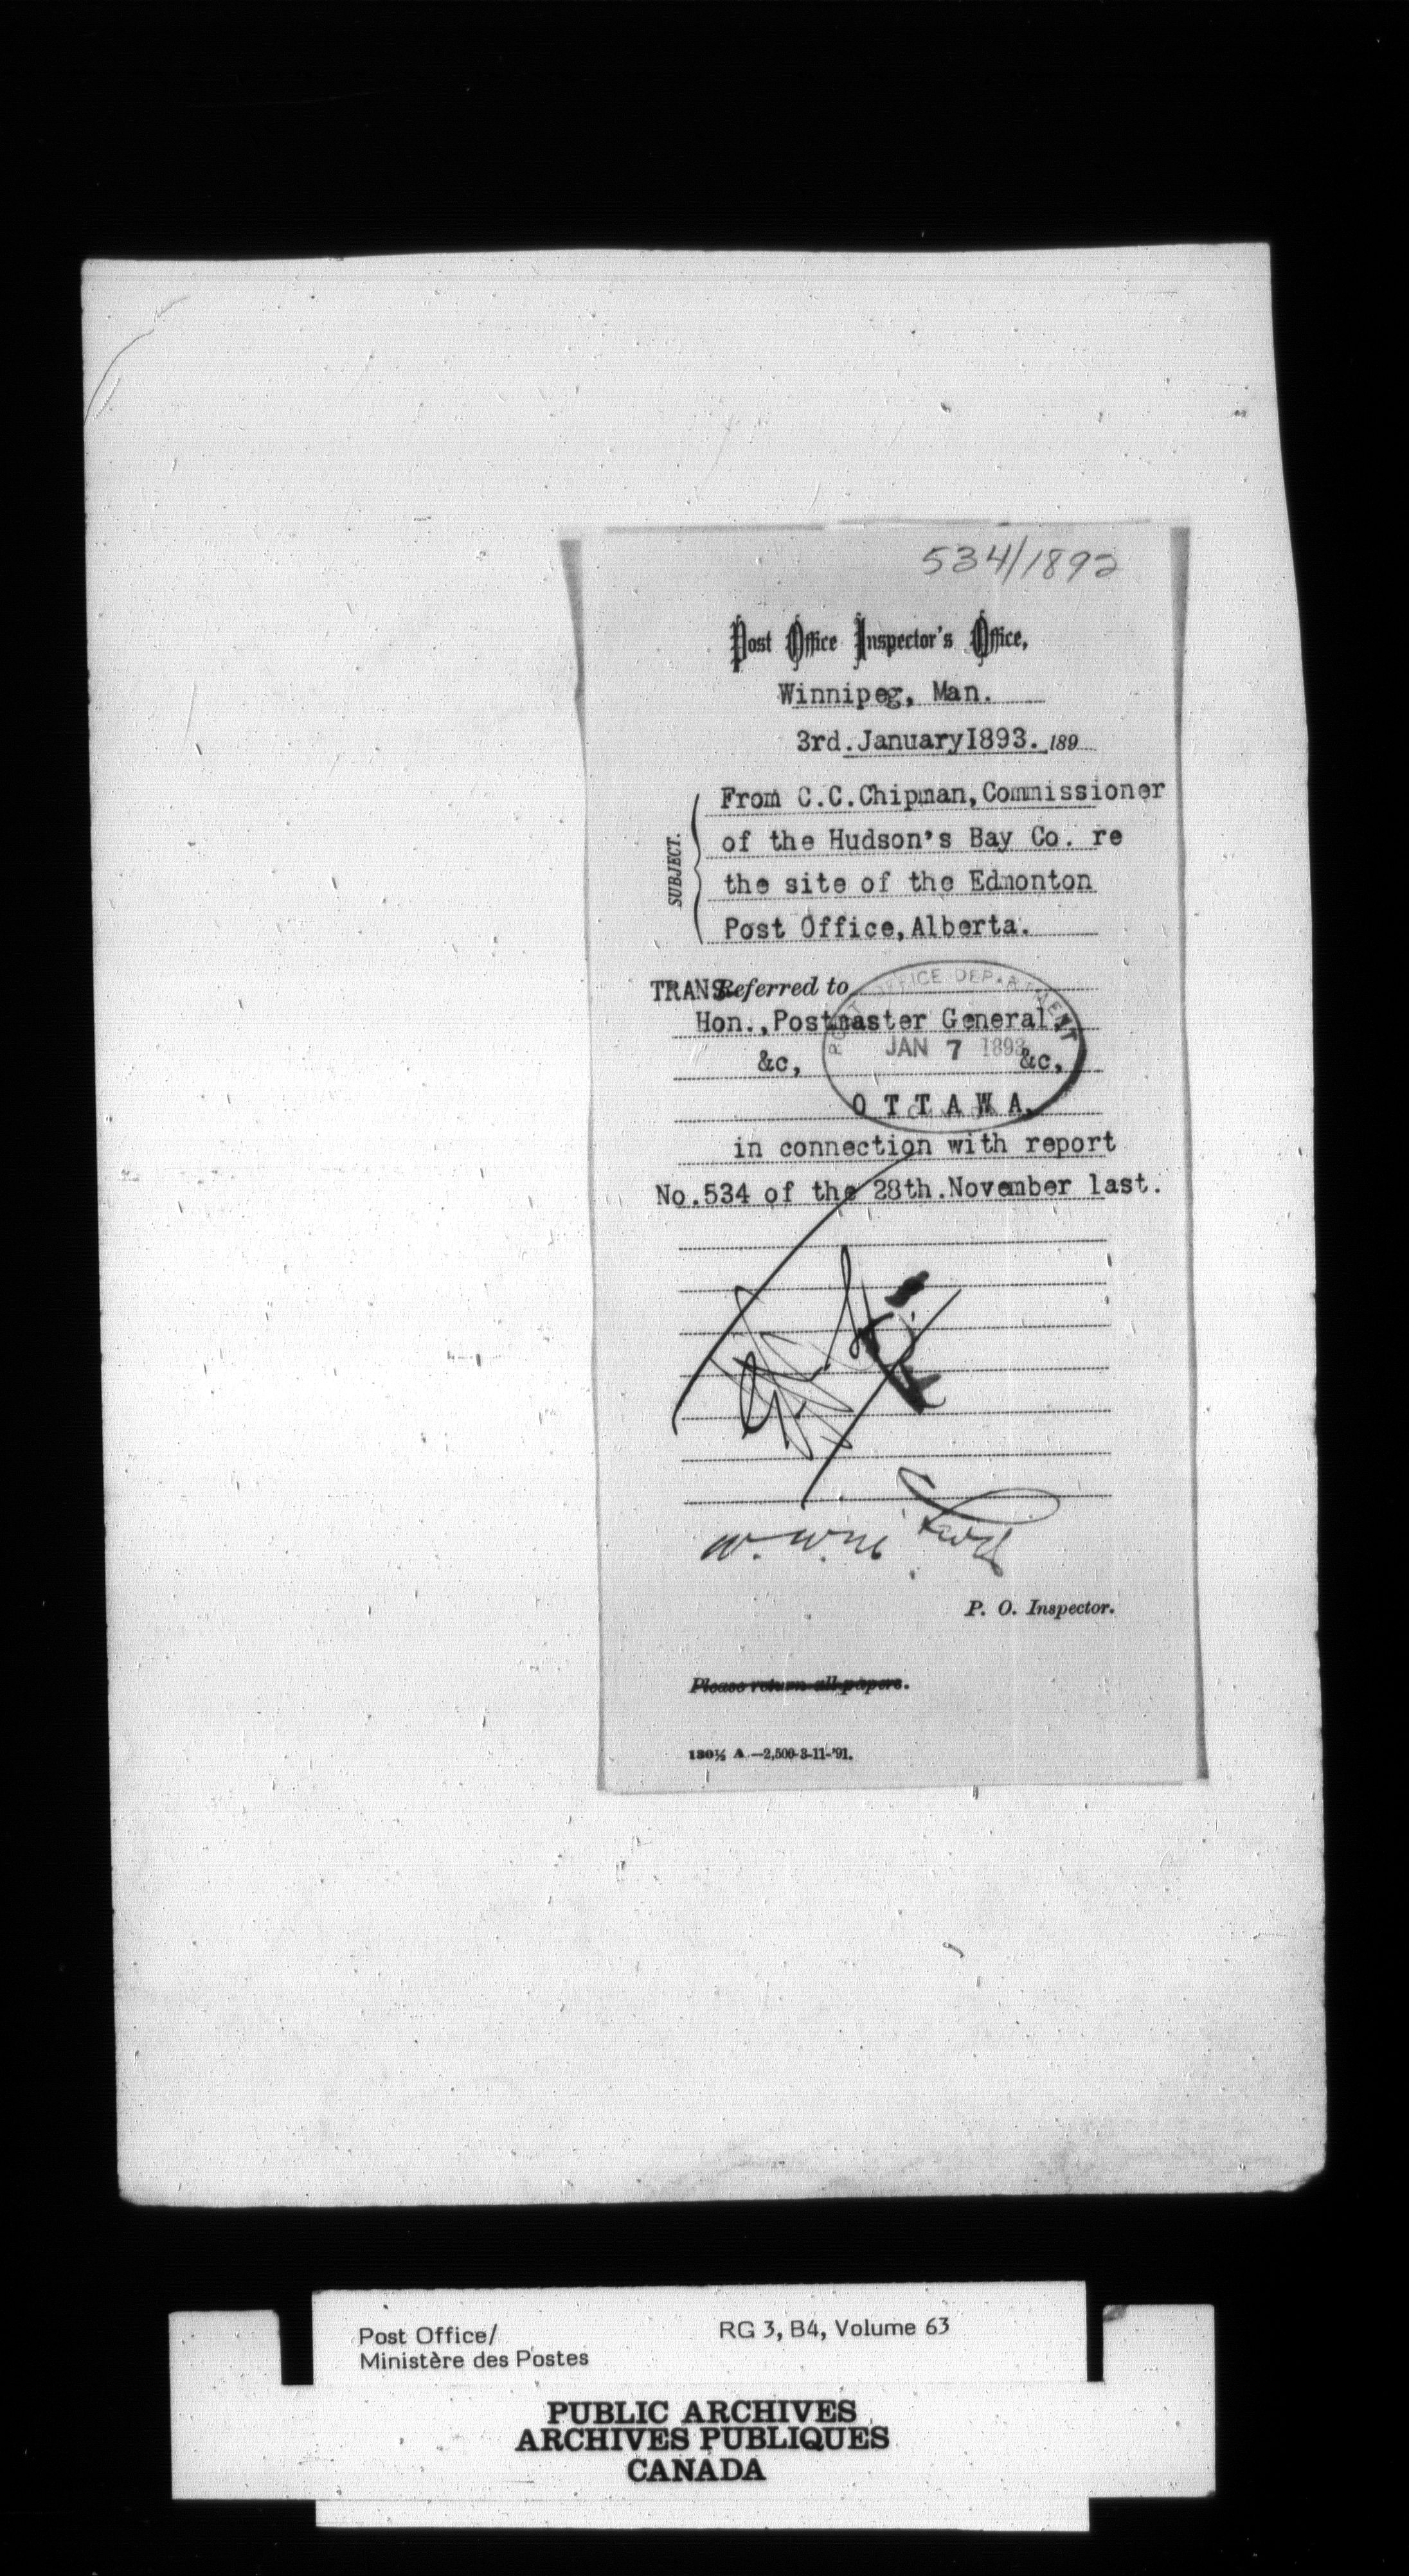 534/1892
Post Office Inspector's Office,
Winnipeg, Man.
3rd.January1893. 189
SUBJECT.
From C.C.Chipman,Commissioner
of the Hudson's Bay Co. re
the site of the Edmonton
Post Office,Alberta.
TRANS Referred to
POST OFFICE DEPARTMENT
Hon.,Postmaster General,
JAN 7 1893
&c, &c,
O T T A W A.
in connection with report
No.534 of the 28th.November last.
W. W. M
P. O. Inspector.
Please return all papers.
130½ A —2,500-3-11-'91.
Post Office/ RG 3, B4, Volume 63
Ministère des Postes
PUBLIC ARCHIVES
ARCHIVES PUBLIQUES
CANADA